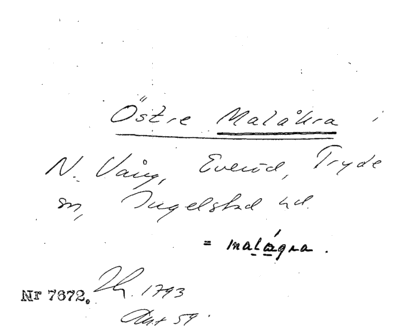 Östre Malåkra i
N. Vång, Everöd, Tryde
sn, Ingelstad hd.
= malágra.
Nr 7672. Lh. 1793
Akt 59.